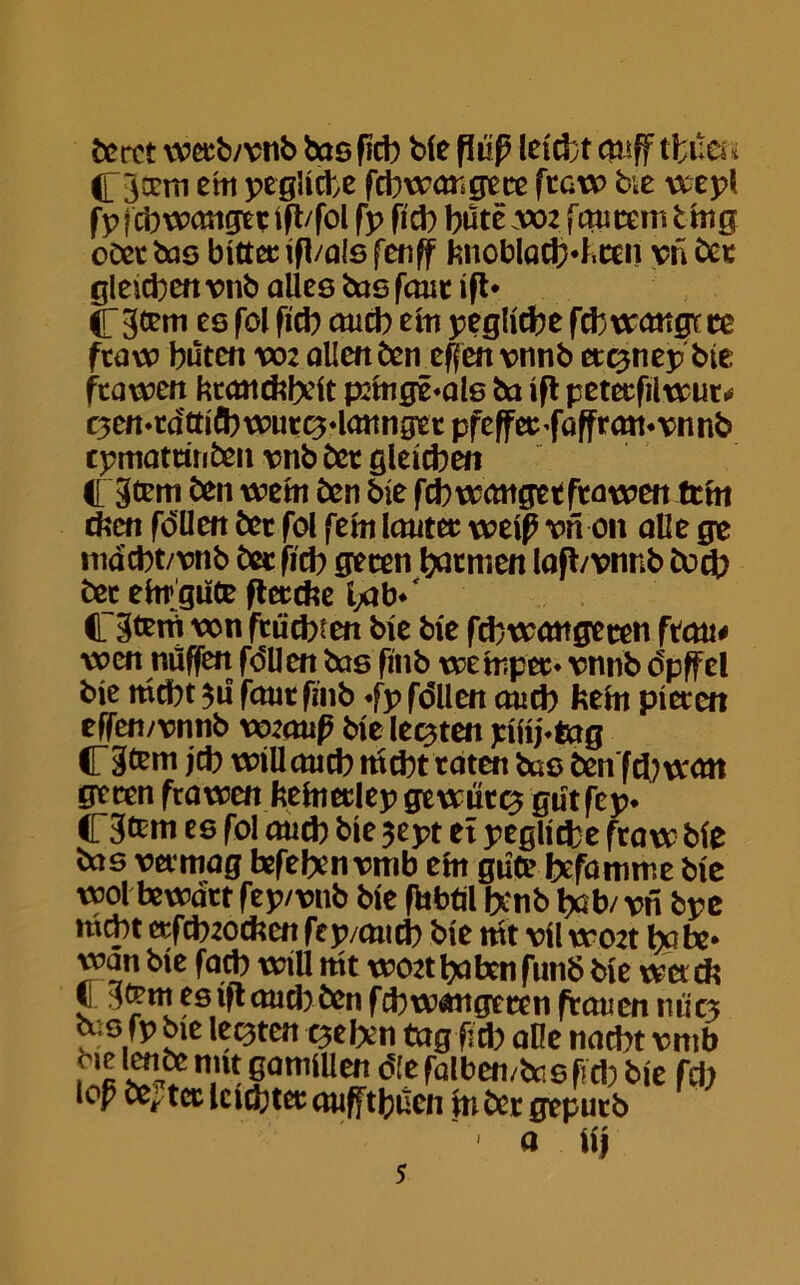 deret werd/vnd das sich die flüß leicht auff thüen
❡ Jtem ein yegliche schwangere fraw die weyl
sy schwanger ist/sol sy sich hütē vor sauerem ting
oder das bitter ist/als senff knoblach-keen vn̄ der
gleichen vnd alles das saur ist.
❡ Jtem es sol sich auch ein yegliche schwangere
fraw hüten vor allen den essen vnnd erczney die
frawen kranckheit pringē.als da ist petersilwur-
czen.rättichwurcz.lannger pfeffer-saffran.vnnd
cymatrinden vnd der gleichen
❡ Jtem den wein den die schwanger frawen trin
cken söllen der sol sein lauter weiß vn̄ on alle ge
mächt/vnd der sich geren harmen laßt/vnnd doch
der ein güte stercke hab.
❡ Jtem von früchten die die schwangeren frau-
wen nüssen söllen das sind weinper. vnnd öpffel
die nicht zü saur sind .sy söllen auch kein pieren
essen/vnnd vorauß die leczten xiiij.tag
❡ Jtem jch will auch nicht raten das den schwan
geren frawen keinerley gewürcz güt sey.
❡ Jtem es sol auch die zeyt eī yegliche fraw bie
das vermag befehen vmb ein güte hefamme die
wol bewärt sey/vnd die subtil hend hab/vn̄ bye
nicht erschrocken sey/auch die mit vil wort habe.
wän die sach will mit wort haben sunß die werck
❡ Jtem es ist auch den schwangeren frauen nücz
das sy die leczten czehen tag sich alle nacht vmb
die lende mit gamillen öle salben/das sich die sch
loß dester leichter auffthüen in der gepurd
a iij
5